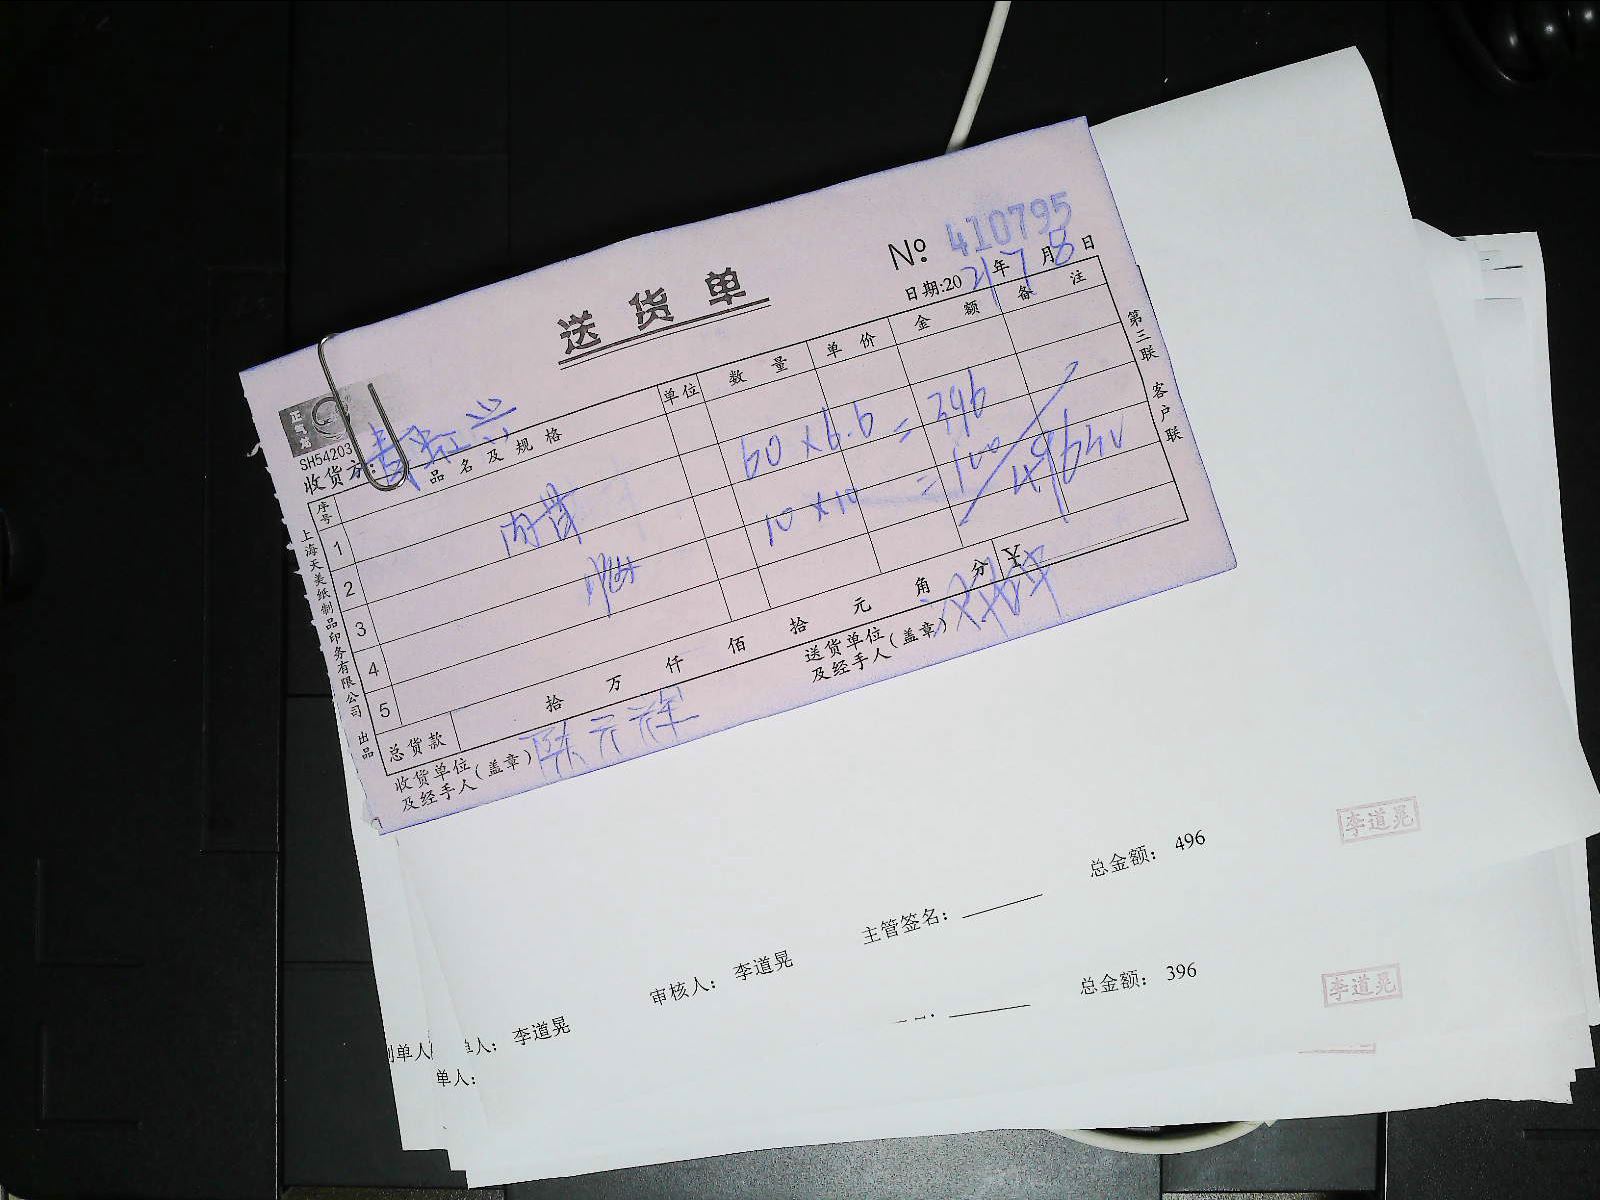 送货单
№ 410795
日期:2021年7月8日
正气龙
SH54203
收货方:
序号 品名及规格 单位 数量 单价 金额 备注
1 肉骨 60×6.6=396
2 10×10=100
3 496
4
5
总货款 拾 万 仟 佰 拾 元 角 分 ¥
收货单位及经手人(盖章) 陈元辉
送货单位及经手人(盖章)
第三联 客户联
上海天美纸制品印务有限公司 出品
总金额: 496
李道晃
主管签名:
审核人: 李道晃
总金额: 396
李道晃
单人: 李道晃
单人
单人: